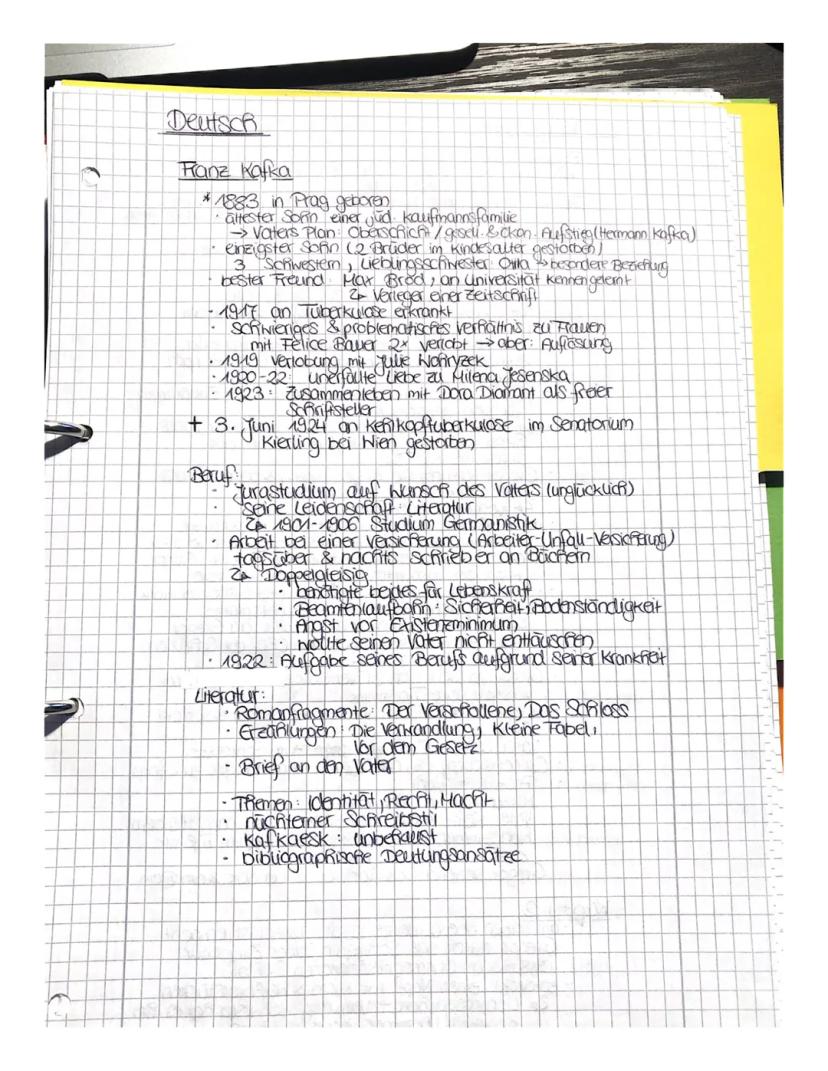 Deutsch
Franz Kafka
* 1883 in Prag geboren
· ältester Sohn einer jüd. Kaufmannsfamilie
→ Vaters Plan: Oberschicht / gesell. & ökon. Aufstieg (Hermann Kafka)
· einzigster Sohn (2 Brüder im Kindesalter gestorben)
3 Schwestern, Lieblingsschwester: Ottla → besondere Beziehung
· bester Freund: Max Brod, an Universität kennengelernt
↳ Verleger einer Zeitschrift
· 1917 an Tuberkulose erkrankt
· schwieriges & problematisches Verhältnis zu Frauen
mit Felice Bauer 2x verlobt → aber: Auflösung
· 1919 Verlobung mit Julie Wohryzek
· 1920-22: unerfüllte Liebe zu Milena Jesenska
· 1923: Zusammenleben mit Dora Diamant als freier
Schriftsteller
+ 3. Juni 1924 an Kehlkopftuberkulose im Senatorium
Kierling bei Wien gestorben
Beruf:
· Jurastudium auf Wunsch des Vaters (unglücklich)
· seine Leidenschaft: Literatur
↳ 1901-1906 Studium Germanistik
· Arbeit bei einer Versicherung (Arbeiter-Unfall-Versicherung)
tagsüber & nachts schrieb er an Büchern
↳ Doppelgleisig
· benötigte beides für Lebenskraft
· Beamtenlaufbahn: Sicherheit, Bodenständigkeit
· Angst vor Existenzminimum
· wollte seinen Vater nicht enttäuschen
· 1922: Aufgabe seines Berufs aufgrund seiner Krankheit
Literatur:
· Romanfragmente: Der Verschollene, Das Schloss
· Erzählungen: Die Verwandlung, Kleine Fabel,
Vor dem Gesetz
· Brief an den Vater
· Themen: Identität, Recht, Macht
· nüchterner Schreibstil
· Kafkaesk: unbehaust
· bibliographische Deutungsansätze